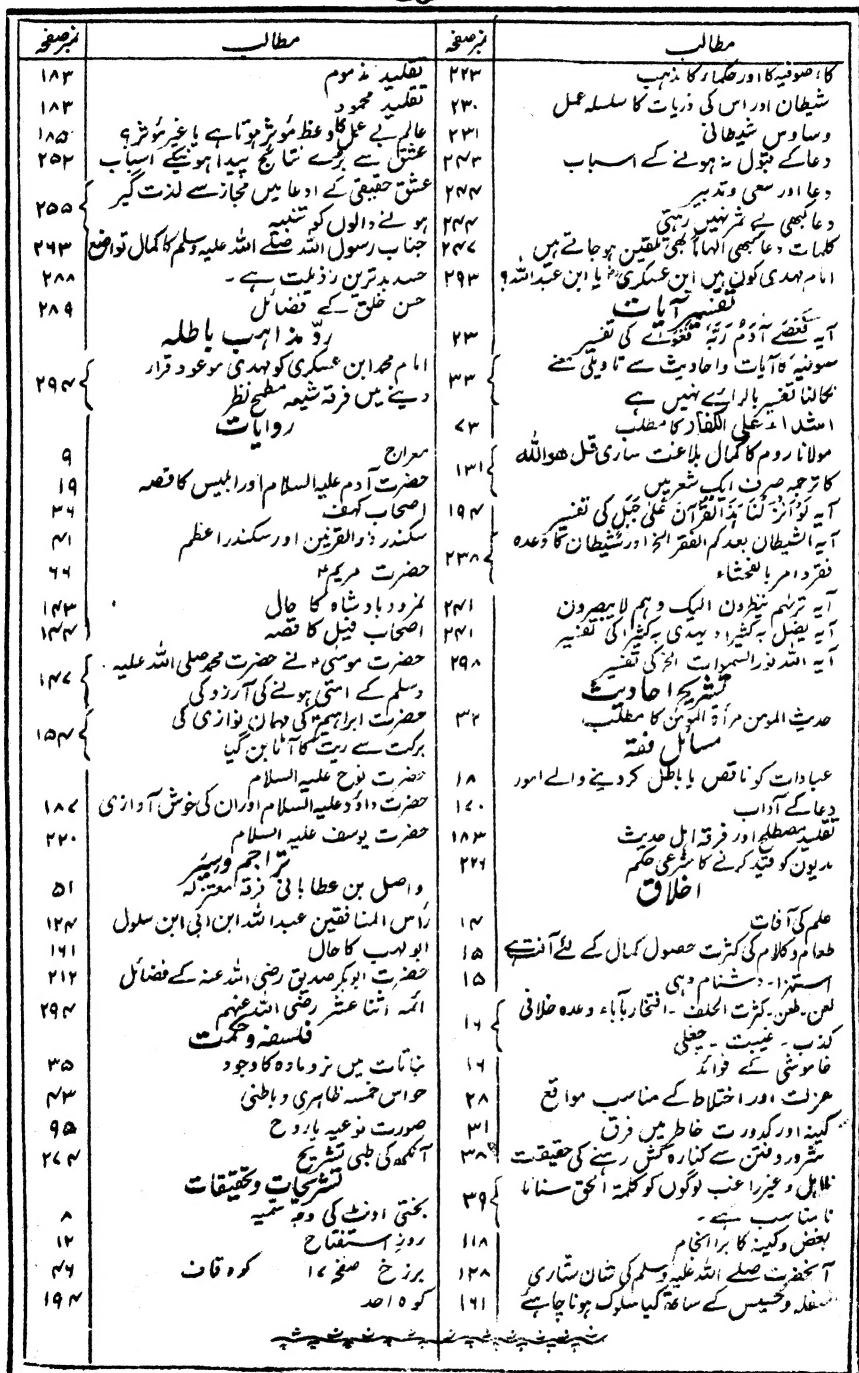 مطالب نمبر صفحہ
کا، صوفیہ کا اور حکماء کا مذہب ۲۲۳
شیطان اور اس کی ذریات کا سلسلہ عمل ۲۳۰
وساوس شیطانی ۲۳۱
دعا کے قبول نہ ہونے کے اسباب ۲۴۳
دعا اور سعی و تدبیر ۲۴۴
دعا کبھی بے ثمر نہیں رہتی ۲۴۴
کلمات دعا کبھی الہاماً بھی تلقین ہو جاتے ہیں ۲۴۷
امام مہدی کون ہیں ابن عسکری یا ابن عبداللہ؟ ۲۹۳
تفسیر آیات
آیہ فَعَصٰے آدَمُ رَبَّہٗ فَغَوٰے کی تفسیر ۲۳
صوفیہ کا آیات و احادیث سے تاویلی معنے
نکالنا تفسیر بالراے نہیں ہے ۳۳
اشداء علی الکفار کا مطلب ۷۳
مولانا روم کا کمال بلاغت ساری قل ھو اللہ
کا ترجمہ صرف ایک شعر میں ۱۳۱
آیہ لَوْ اَنْزَلْنَا ہٰذَا الْقُرْآنَ عَلٰی جَبَلٍ کی تفسیر ۱۹۴
آیہ الشیطان یعدکم الفقر الخ اور شیطان کا وعدہ
فقر و امر بالفحشاء ۲۳۸
آیہ ترٰہم ینظرون الیک و ہم لا یبصرون ۲۴۱
آیہ یضل بہ کثیرا و یہدی بہ کثیرا کی تفسیر ۲۴۱
آیہ اللہ نور السموات الخ کی تفسیر ۲۹۸
تشریح احادیث
حدیث المومن مرأۃ المومن کا مطلب ۳۲
مسائل فقہ
عبادات کو ناقص یا باطل کر دینے والے امور ۱۸
دعا کے آداب ۱۷۰
تقلید مصطلح اور فرقہ اہل حدیث ۱۸۳
مدیون کو قید کرنے کا شرعی حکم ۲۲۶
اخلاق
علم کی آفات ۱۴
طعام و کلام کی کثرت حصول کمال کے لئے آفت ہے ۱۵
استہزا - دشنام دہی ۱۵
لعن - طعن - کثرت الحلف - افتخار بآباء وعدہ خلافی
کذب - غیبت - چغلی ۱۶
خاموشی کے فوائد ۱۶
عزلت اور اختلاط کے مناسب مواقع ۲۸
کینہ اور کدورت خاطر میں فرق ۳۱
شرور و فتن سے کنارہ کش رہنے کی حقیقت ۳۸
نااہل و غیر راغب لوگوں کو کلمۃ الحق سنانا
نامناسب ہے - ۳۹
بغض و کینہ کا برا انجام ۱۱۸
آنحضرت صلے اللہ علیہ وسلم کی شان ستاری ۱۲۸
سفلہ و خسیس کے ساتھ کیا سلوک ہونا چاہئے ۱۶۱
مطالب نمبر صفحہ
تقلید مذموم ۱۸۳
تقلید محمود ۱۸۳
عالم بے عمل کا وعظ مؤثر ہوتا ہے یا غیر مؤثر؟ ۱۸۵
عشق سے بڑے نتائج پیدا ہونیکے اسباب ۲۵۲
عشق حقیقی کے ادعا میں مجاز سے لذت گیر
ہونے والوں کو تنبیہ ۲۵۵
جناب رسول اللہ صلے اللہ علیہ وسلم کا کمال تواضع ۲۶۳
حسد بدترین رذیلت ہے - ۲۸۸
حسن خلق کے فضائل ۲۸۹
ردّ مذاہب باطلہ
امام محمد ابن عسکری کو مہدی موعود قرار
دینے میں فرقہ شیعہ مطمح نظر ۲۹۴
روایات
معراج ۹
حضرت آدم علیہ السلام اور ابلیس کا قصہ ۱۹
اصحاب کہف ۳۶
سکندر ذوالقرنین اور سکندر اعظم ۴۱
حضرت مریم ۶۶
نمرود بادشاہ کا حال ۱۴۳
اصحاب فیل کا قصہ ۱۴۴
حضرت موسیٰ نے حضرت محمد صلی اللہ علیہ
وسلم کے امتی ہونے کی آرزو کی ۱۴۷
حضرت ابراہیم کی مہمان نوازی کی
برکت سے ریت کا آٹا بن گیا ۱۵۴
حضرت نوح علیہ السلام
حضرت داؤد علیہ السلام اور ان کی خوش آوازی ۱۸۷
حضرت یوسف علیہ السلام ۲۲۰
تراجم و سیر
واصل بن عطا بانی فرقہ معتزلہ ۵۱
رأس المنافقین عبداللہ ابن ابی ابن سلول ۱۲۴
ابولہب کا حال ۱۶۱
حضرت ابوبکر صدیق رضی اللہ عنہ کے فضائل ۲۱۲
ائمہ اثنا عشر رضی اللہ عنہم ۲۹۴
فلسفہ و حکمت
نباتات میں نر و مادہ کا وجود ۳۵
حواس خمسہ ظاہری و باطنی ۴۳
صورت نوعیہ یا روح ۹۵
آنکھ کی طبی تشریح ۲۷۴
تشریحات و تحقیقات
بختی اونٹ کی وجہ تسمیہ ۸
روز استفتاح ۱۲
برزخ صفحہ ۱۷ کوہ قاف ۴۶
کوہ احد ۱۹۴